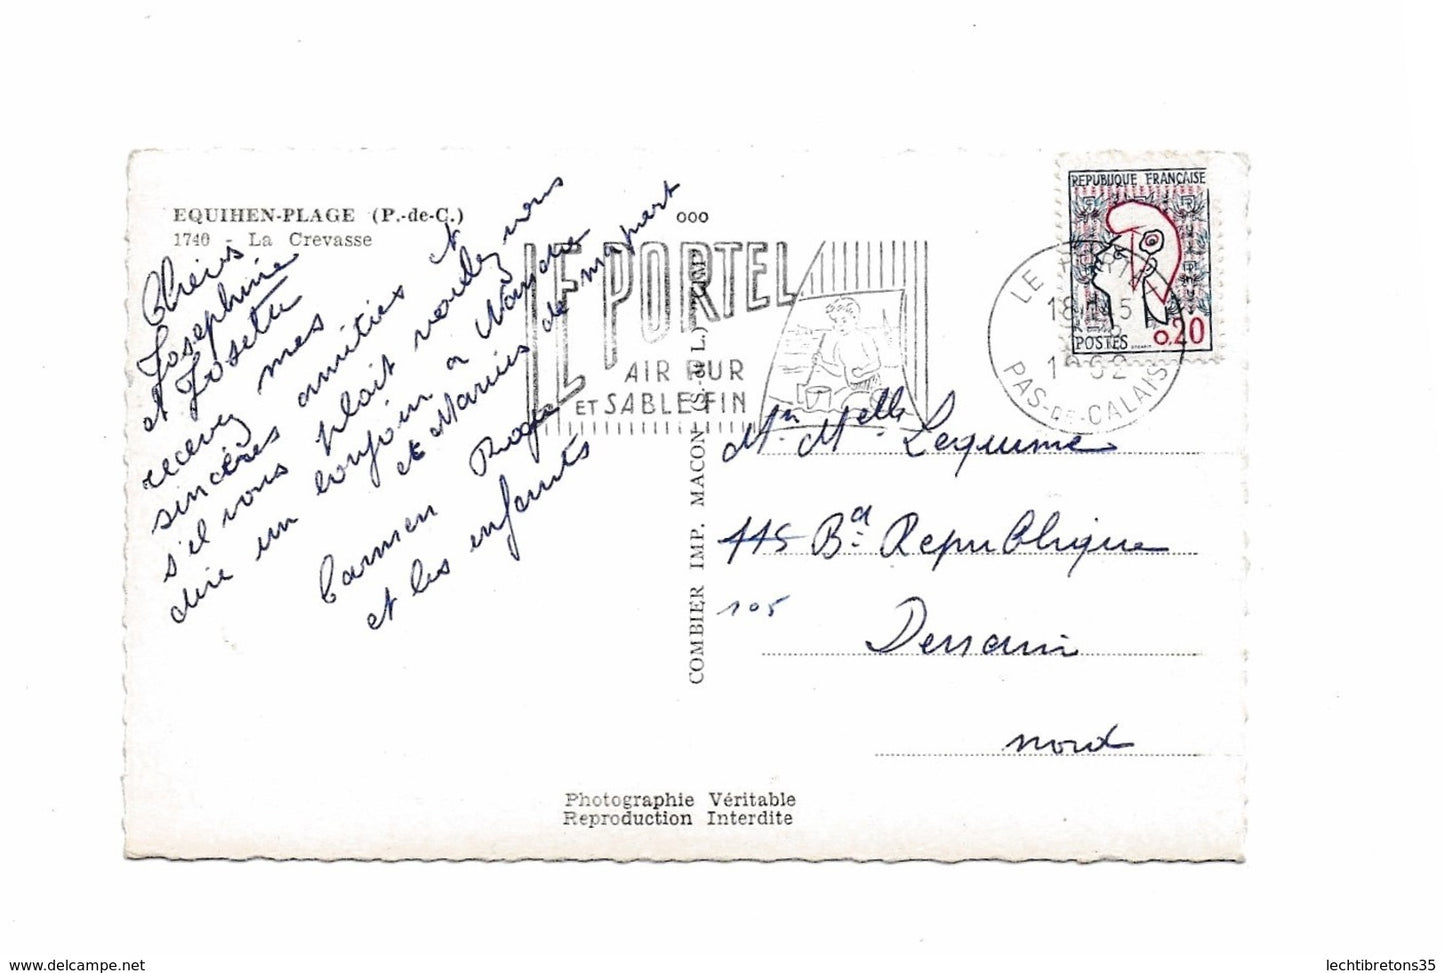 EQUIHEN-PLAGE (P.-de-C.)
1740 - La Crevasse
Chères
Josephine et
et Josette
recevez mes
sincères amitiés
s'il vous plait voulez vous
dire un bonjour a Nandre
et Marius de ma part
Carmen Roger
et les enfants
ooo
LE PORTEL
AIR PUR
ET SABLE FIN
COMBIER IMP. MACON (S.-de-L.)
REPUBLIQUE FRANÇAISE
POSTES 0.20
LE PORTEL
18H15
1962
PAS-DE-CALAIS
Mr Melle Lequime
115 Bd Republique
105
Denain
nord
Photographie Véritable
Reproduction Interdite
delcampe.net
lechtibretons35